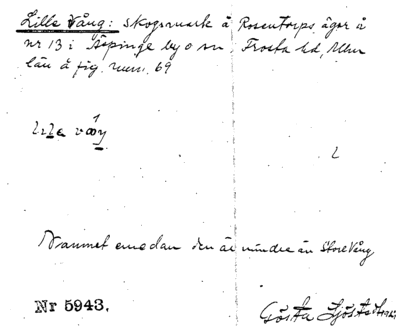 Lille Vång: skogsmark å Rosentorps ägor å
nr 13 i Äspinge by o sn, Frosta hd, Mlm
län å fig. num. 69
Namnet emedan den är mindre än Store Vång
Nr 5943.
Gösta